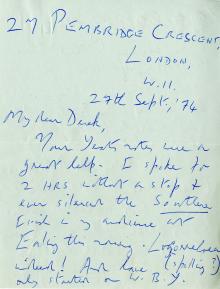 27 PEMBRIDGE CRESCENT,
LONDON,
W.11.
27th Sept, '74
My dear Derek,
Your Yeats notes were a
great help. I spoke for
2 HRS without a stop &
even silenced the Southern
Irish in my audience at
Ealing this morning. Logorrhoea
(spelling?)
indeed! And have
only started on W.B.Y.